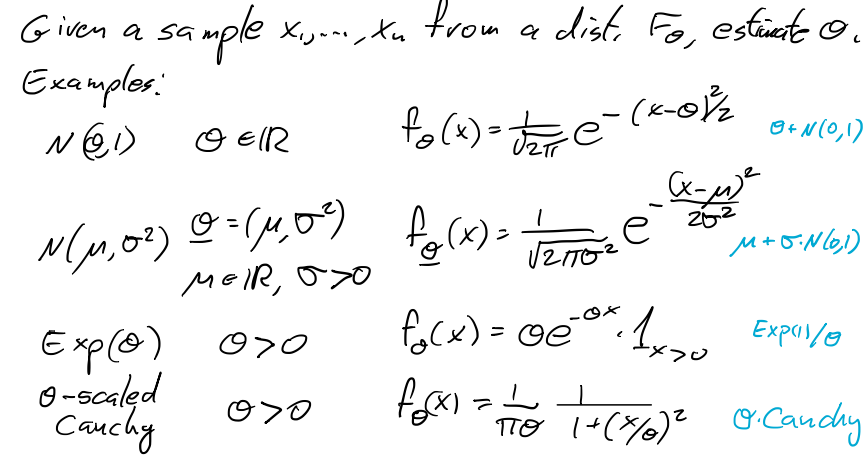 Given a sample x₁,...,xₙ from a dist. F_θ, estimate θ.
Examples:
N(θ,1) θ∈ℝ f_θ(x) = 1/√(2π) e^{-(x-θ)²/2} θ+N(0,1)
N(μ,σ²) θ̲ = (μ,σ²) μ∈ℝ, σ>0 f_θ̲(x) = 1/√(2πσ²) e^{-(x-μ)²/(2σ²)} μ+σ·N(0,1)
Exp(θ) θ>0 f_θ(x) = θe^{-θx}·1_{x>0} Exp(1)/θ
θ-scaled Cauchy θ>0 f_θ(x) = 1/(πθ) 1/(1+(x/θ)²) θ·Cauchy